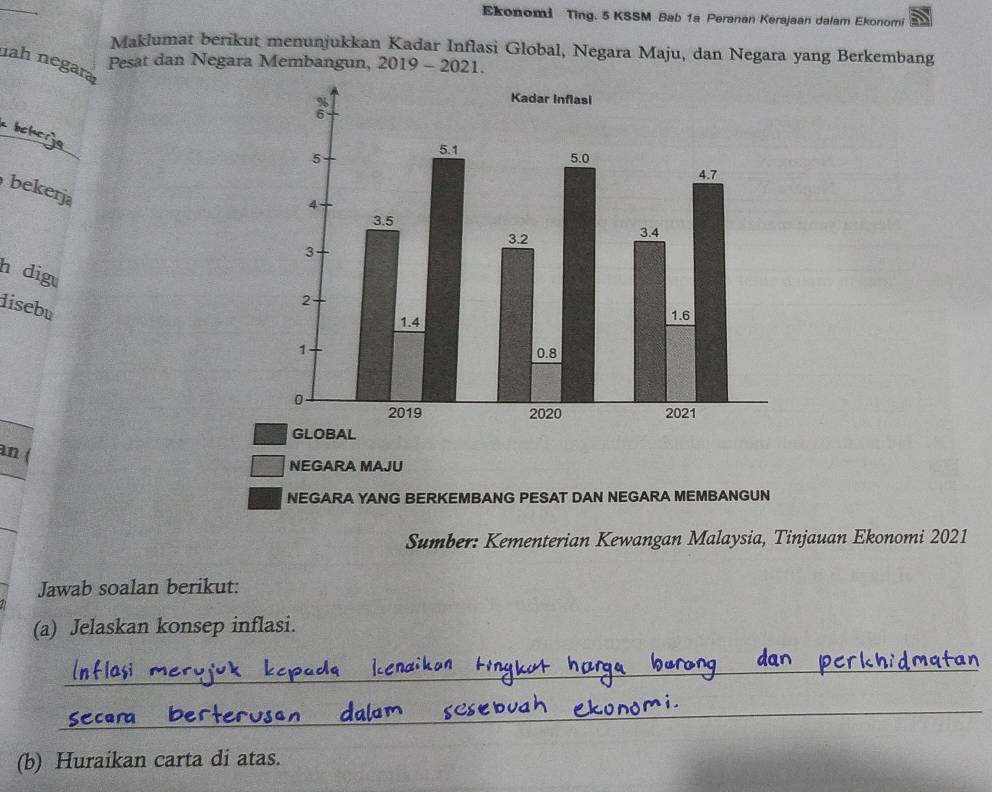 Ekonomi Ting. 5 KSSM Bab 1a Peranan Kerajaan dalam Ekonomi
uah negara
Maklumat berikut menunjukkan Kadar Inflasi Global, Negara Maju, dan Negara yang Berkembang
Pesat dan Negara Membangun, 2019 – 2021.
bekerja
bekerja
h digu
disebu
an (
Kadar Inflasi
%
6
5
4
3
2
1
0
3.5
1.4
5.1
3.2
0.8
5.0
3.4
1.6
4.7
2019 2020 2021
GLOBAL
NEGARA MAJU
NEGARA YANG BERKEMBANG PESAT DAN NEGARA MEMBANGUN
Sumber: Kementerian Kewangan Malaysia, Tinjauan Ekonomi 2021
Jawab soalan berikut:
(a) Jelaskan konsep inflasi.
Inflasi merujuk kepada kenaikan tingkat harga barang dan perkhidmatan
secara berterusan dalam sesebuah ekonomi.
(b) Huraikan carta di atas.